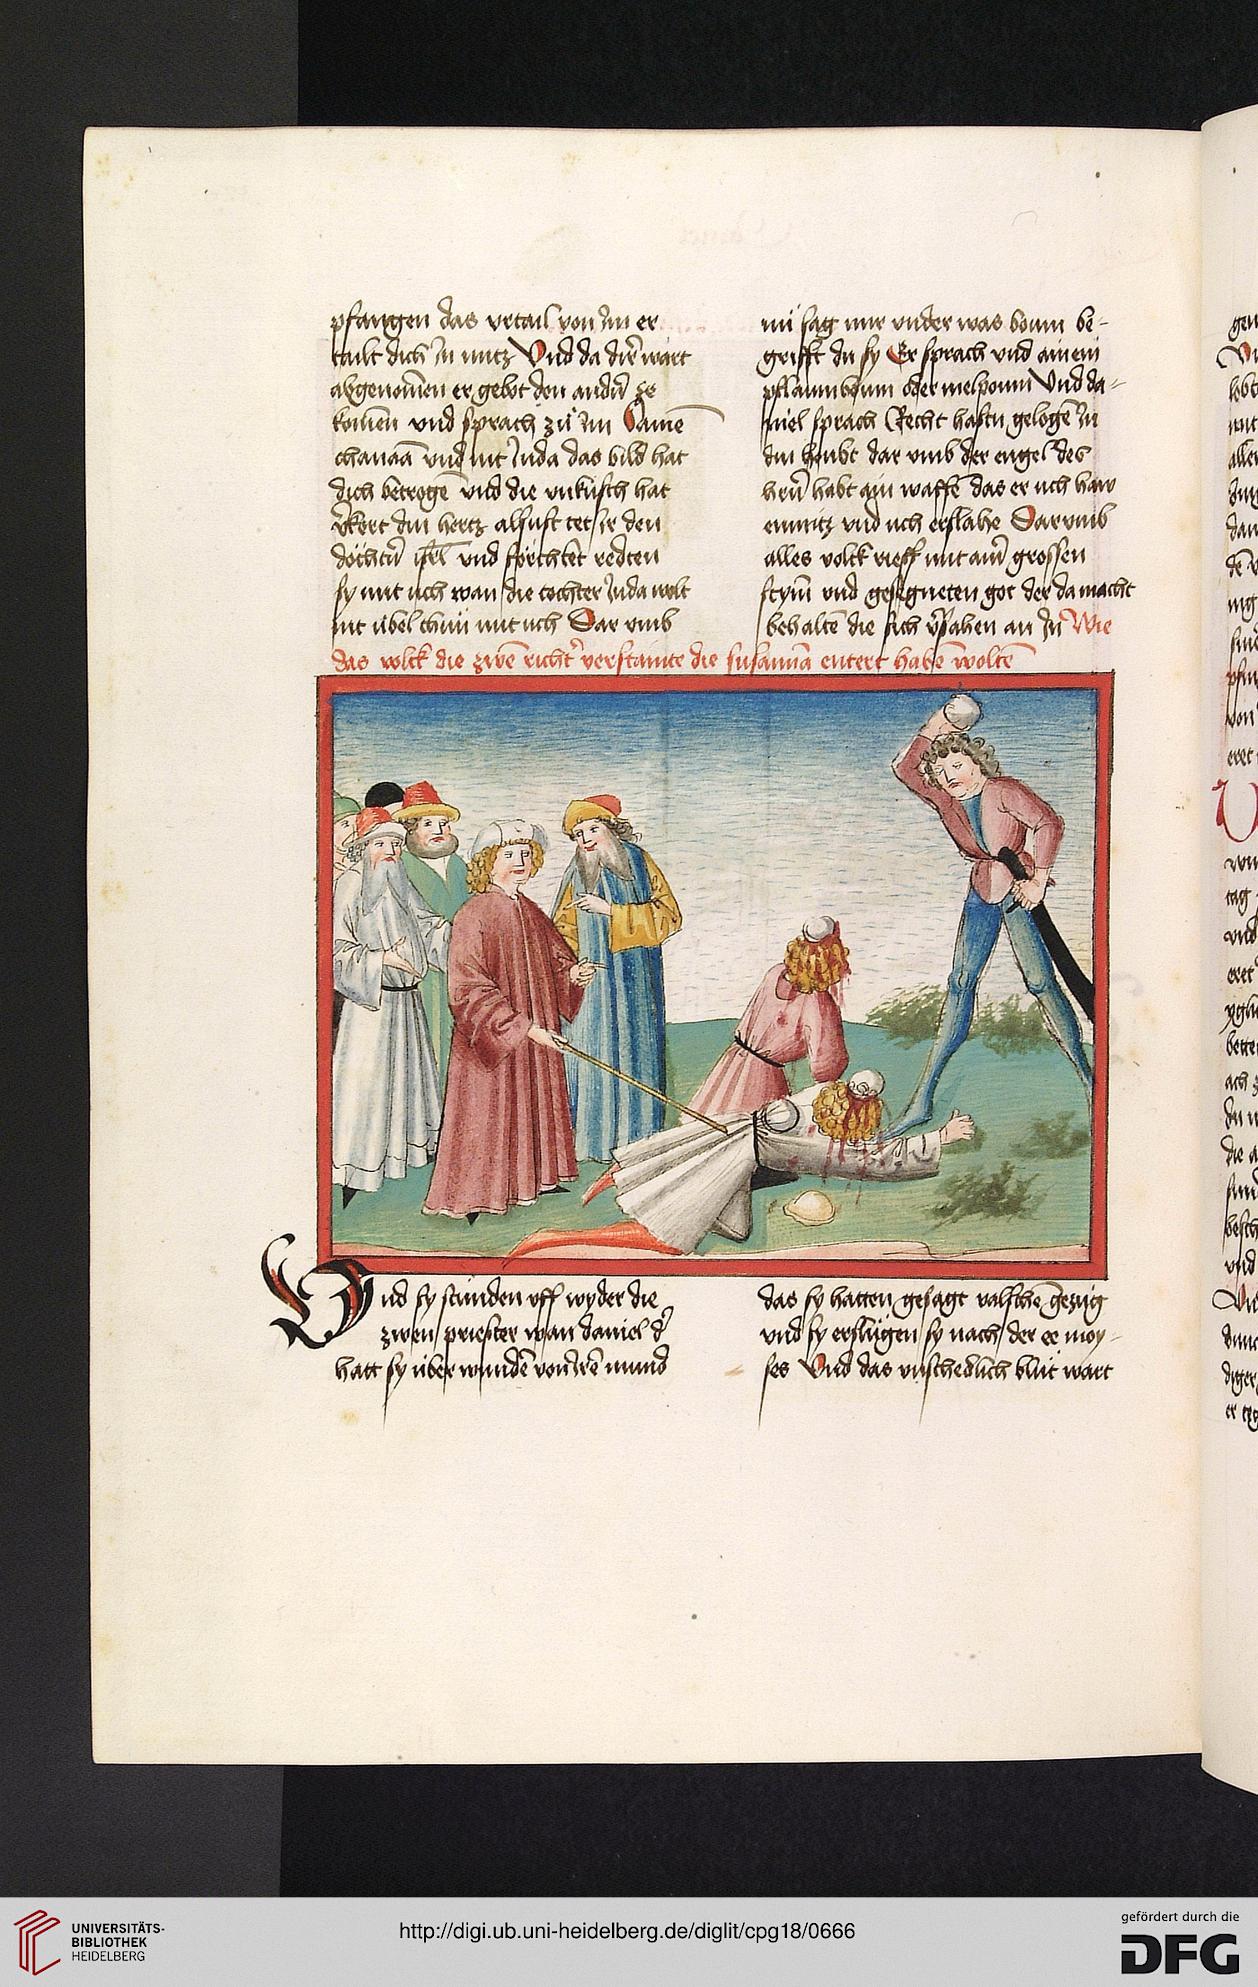 pfangen das vrtail von Im er
tailt dich In mitz Vnd da dirr wart
abgenomen er gebot den andn ze
komen vnd sprach zů Im Samē
chanaā vnd nit Juda das bild hat
dich betrogē vnd die vnkusch hat
v̉kert din hertz alsust tet ir den
dochtn̉ isrl vnd förchtet redten
sy mit uch wan die tochter Juda wolt
nit übel thun mit uch Dar vmb
nū sag mir vnder was boum be-
grifft du sy Er sprach vnd ainem
pflaumboum oder Vnd da-
niel sprach Recht hastu gelogē In
din houbt dar vmb der engel des
hern̉ habt ain waffē das er uch how
enmitz vnd uch erslahe Dar vmb
alles volck rieff mit aim̉ grossen
stym̄ vnd gesegneten got der da macht
behaltē die sich v̉sahen an In Wie
das volck die zwē richt̉ verstainte die susanna entert habē woltē
Vnd sy stůnden vff wyder die
zwen priester wan daniel d̉
hatt sy über wundē von Irē mund
das sy hatten gesagt valsche gezüg
vnd sy erslůgen sy nach der ee moy-
ses Vnd das vnschedlich blůt wart
UNIVERSITÄTS-
BIBLIOTHEK
HEIDELBERG
http://digi.ub.uni-heidelberg.de/diglit/cpg18/0666
gefördert durch die
DFG